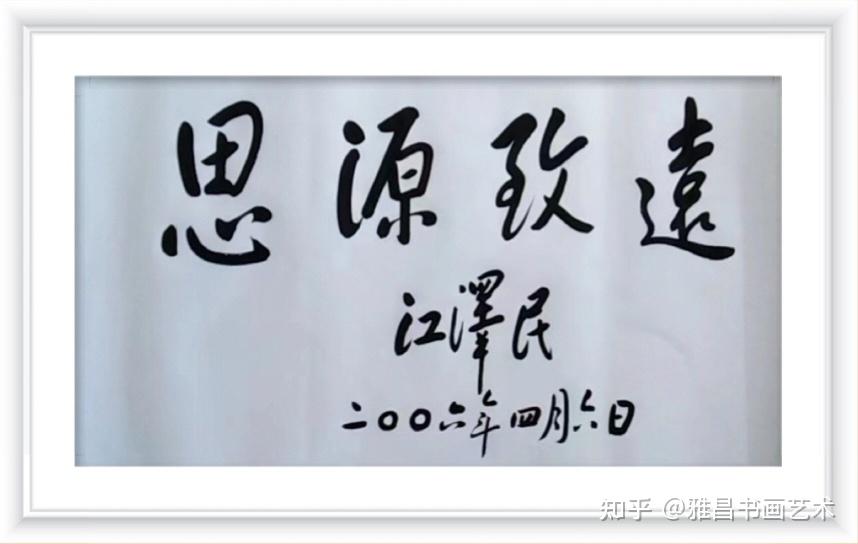 思源致遠
江澤民
二〇〇六年四月六日
知乎 @雅昌书画艺术